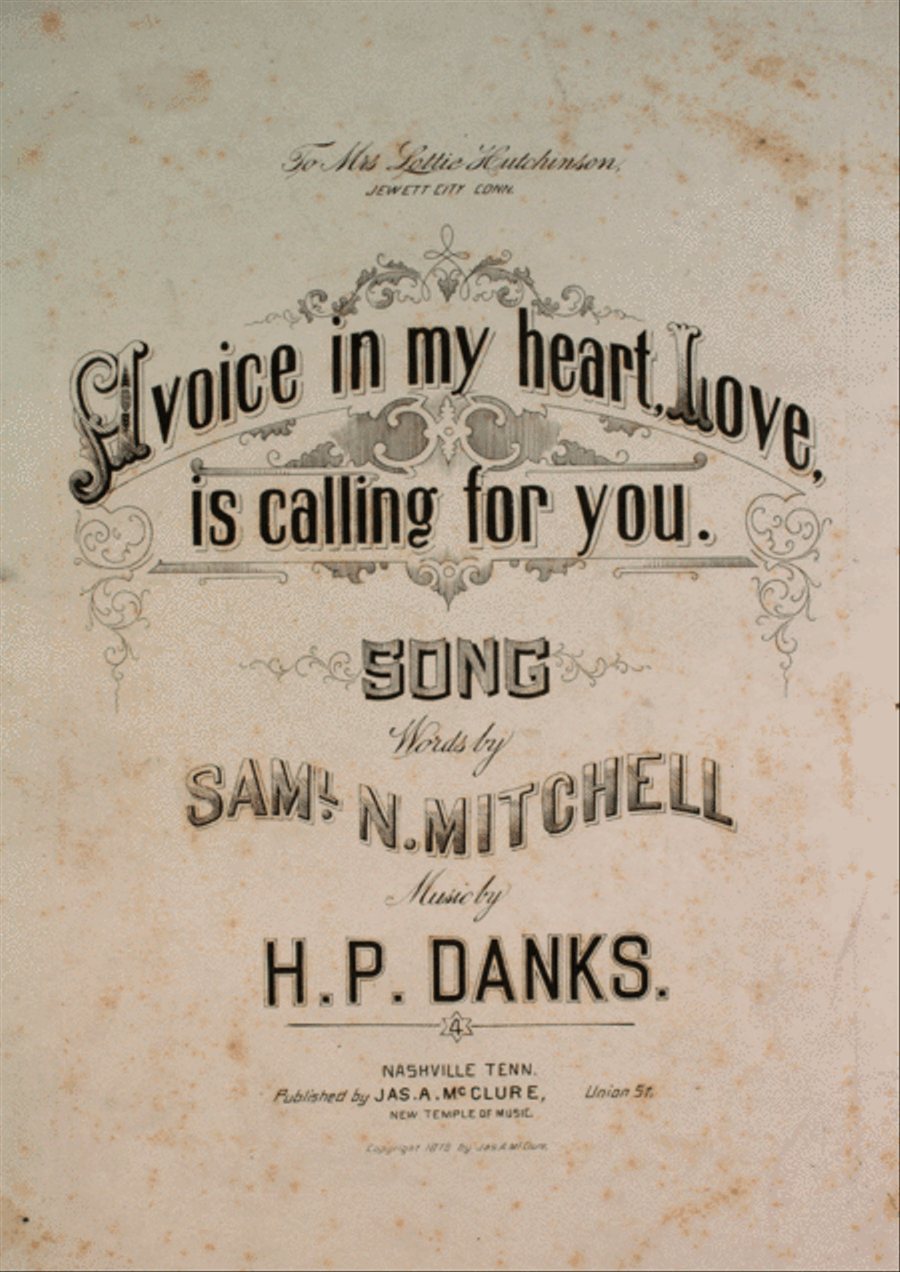 To Mrs Lottie Hutchinson,
JEWETT CITY CONN.
A voice in my heart, Love,
is calling for you.
SONG
Words by
SAML. N. MITCHELL
Music by
H. P. DANKS.
4
NASHVILLE TENN.
Published by JAS. A. McCLURE, Union St.
NEW TEMPLE OF MUSIC.
Copyright by Jas. A. McClure.